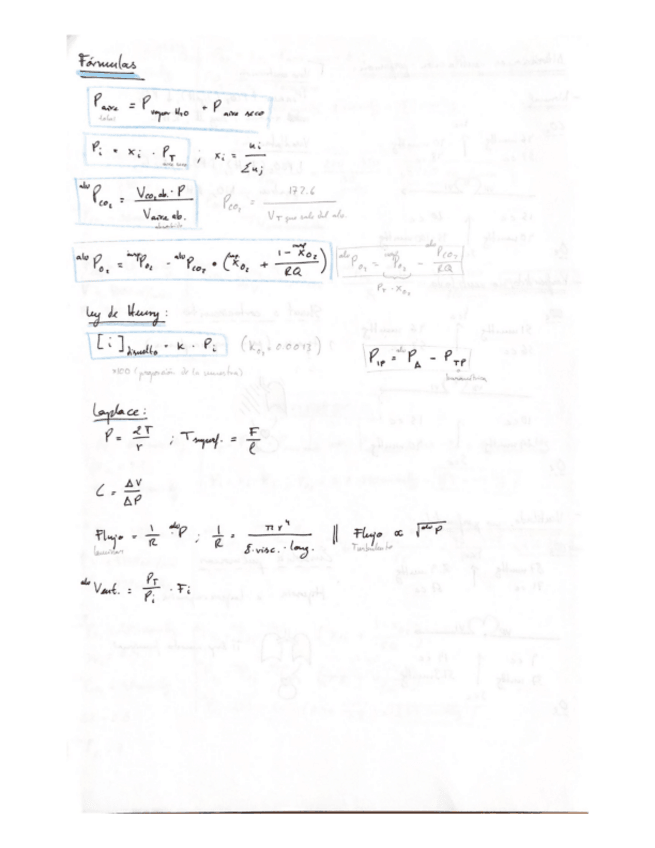 Fórmulas
P aire = P vapor H₂O + P aire seco
Pᵢ = xᵢ · P_T ; xᵢ = nᵢ / Σnⱼ
alv P_CO₂ = V_CO₂ ab. · P / V aire ab. P_CO₂ = 172.6 / V_T que sale del alv.
alv P_O₂ = insp P_O₂ - alv P_CO₂ · (insp X_O₂ + (1 - insp X_O₂) / RQ) alv P_O₂ = insp P_O₂ - alv P_CO₂ / RQ
P_T · X_O₂
Ley de Henry:
[i] disuelto = K · Pᵢ (K_O₂ = 0.0013) P_IP = alv P_A - P_TP
×100 (proporción de la muestra)
Laplace:
P = 2T / r ; T superf. = F / l
C = ΔV / ΔP
Flujo = 1/R P ; 1/R = π r⁴ / 8 · visc. · long. || Flujo ∝ √P
Laminar Turbulento
alv Vent. = P_T / Pᵢ · Fᵢ